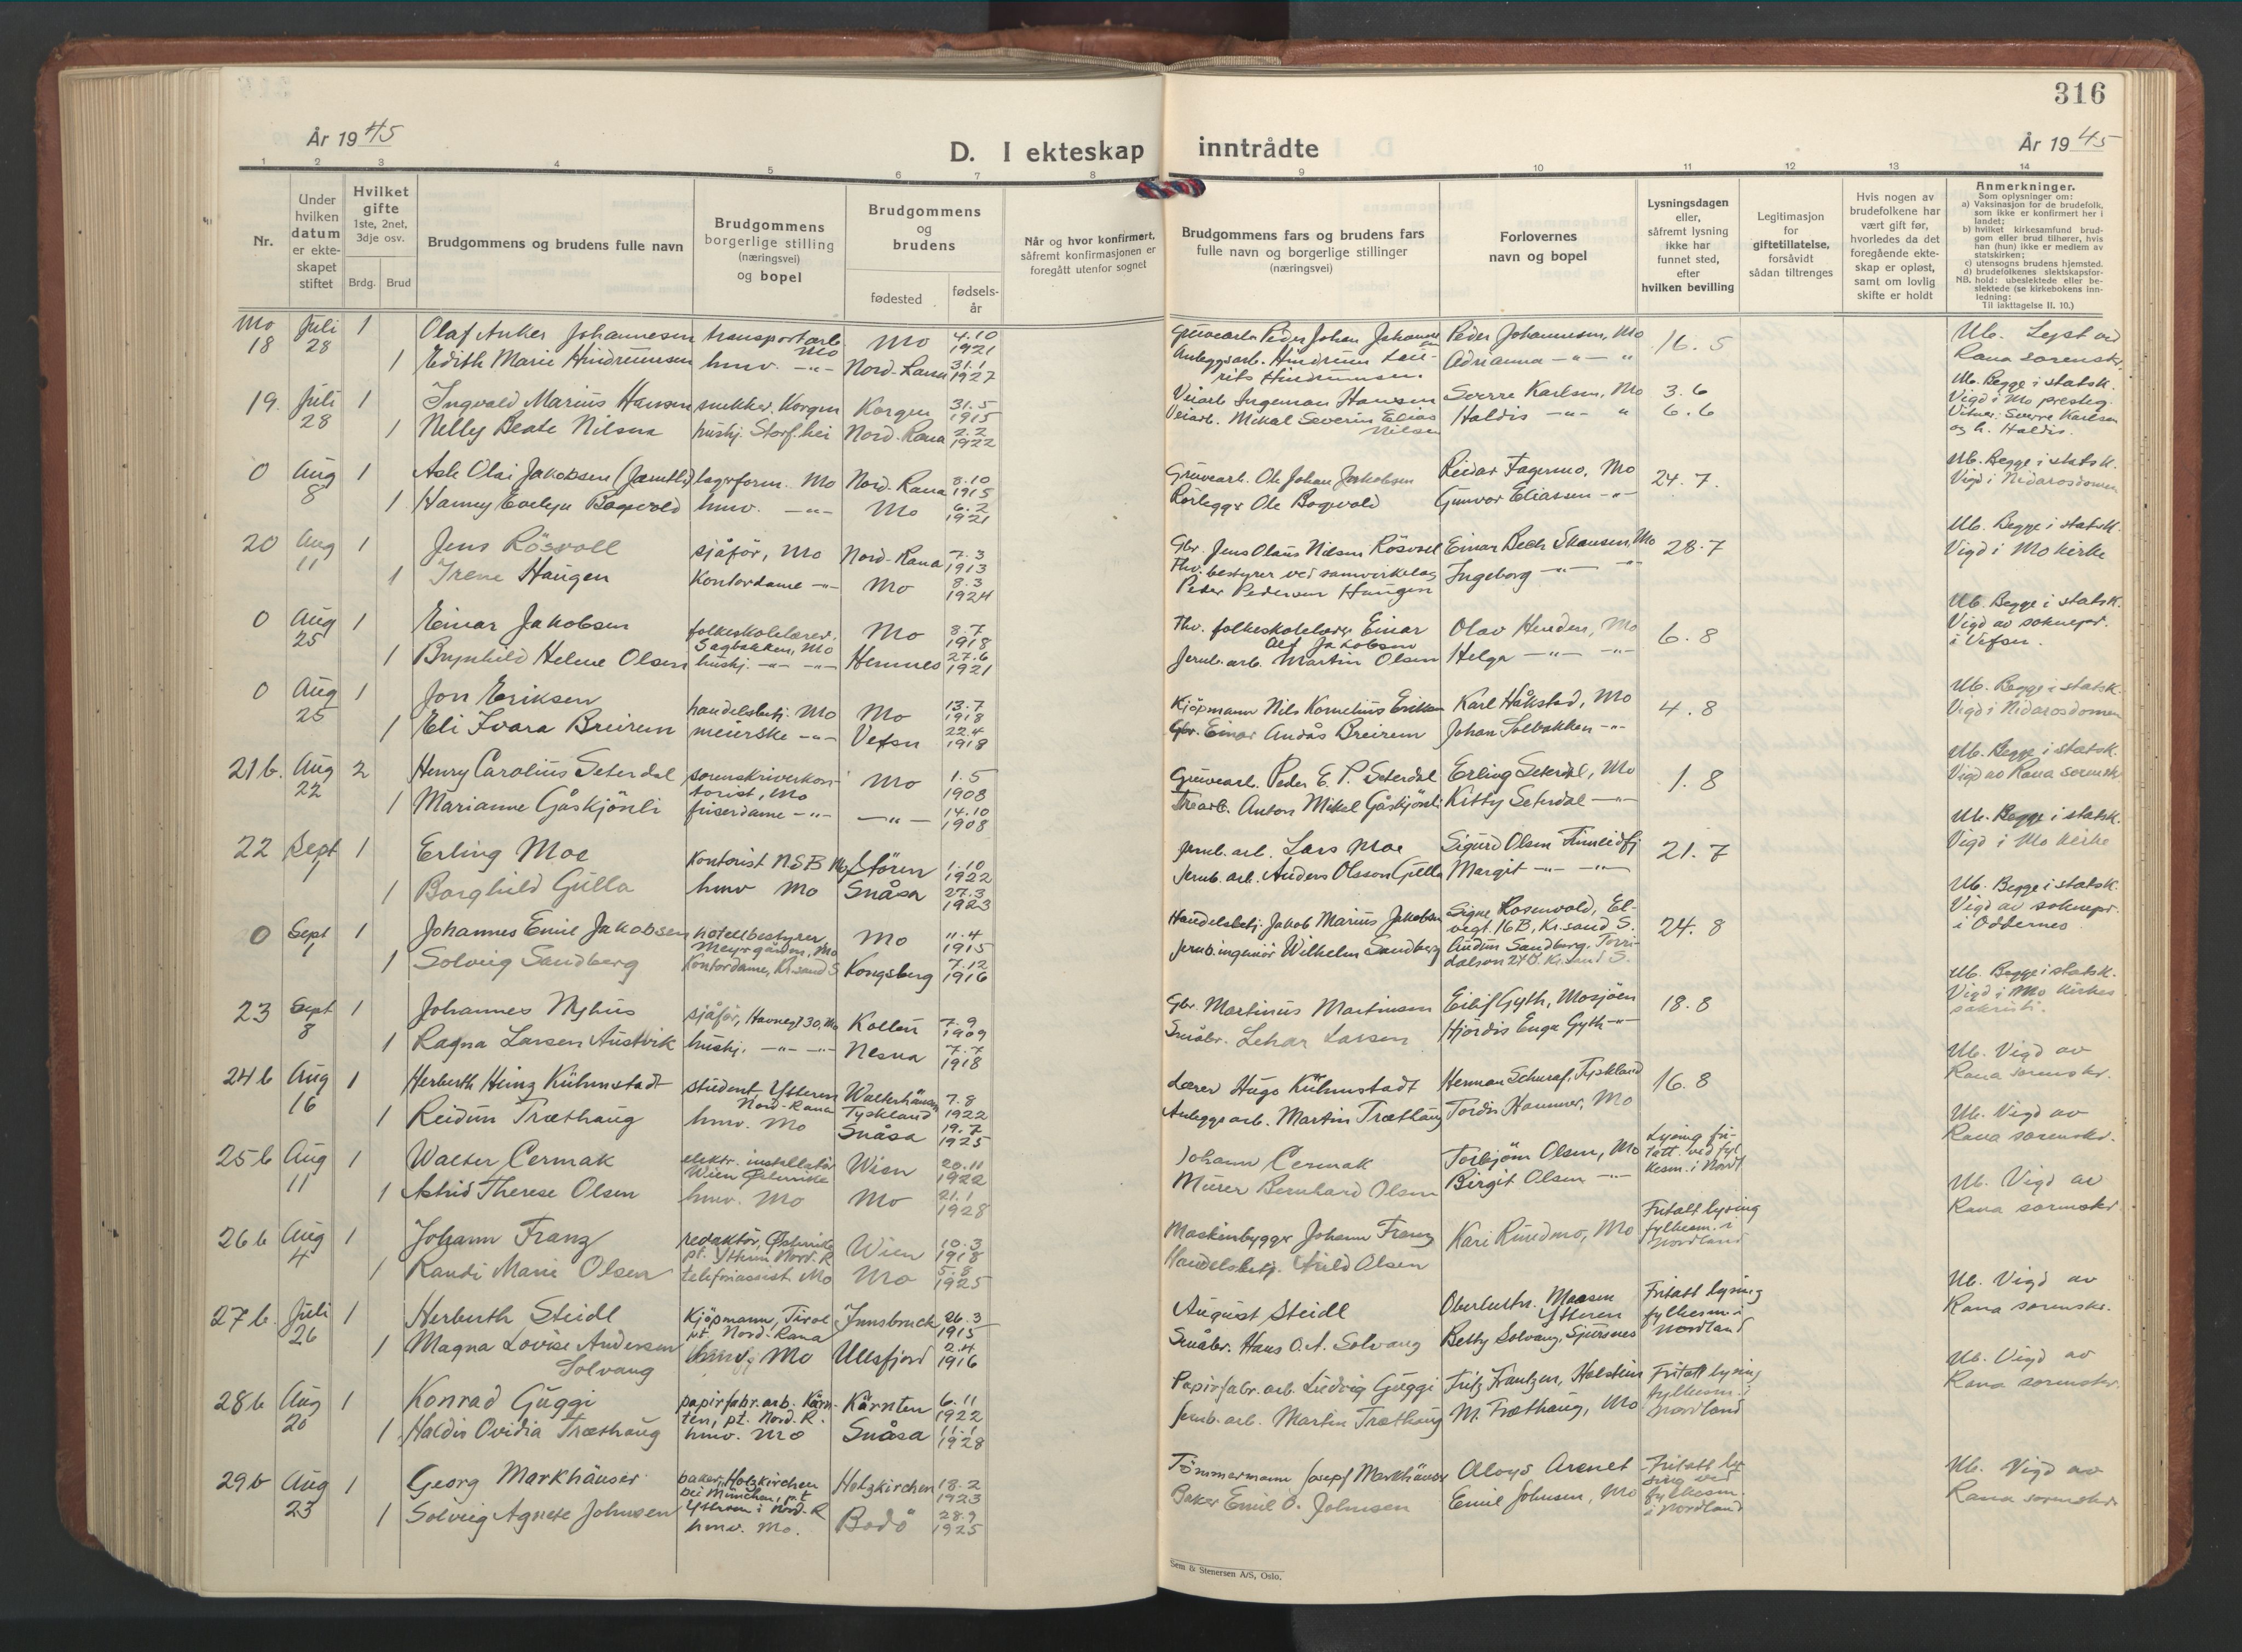 316
År 1945
D. I ekteskap inntrådte
År 1945
1 2 3 4 5 6 7 8 9 10 11 12 13 14
Nr.
Under hvilken datum er ekteskapet stiftet
Hvilket gifte 1ste, 2net, 3dje osv.
Brdg. Brud
Brudgommens og brudens fulle navn
Brudgommens borgerlige stilling (næringsvei) og bopel
Brudgommens og brudens
fødested
fødsels-år
Når og hvor konfirmert, såfremt konfirmasjonen er foregått utenfor sognet
Brudgommens fars og brudens fars fulle navn og borgerlige stillinger (næringsvei)
Forlovernes navn og bopel
Lysningsdagen eller, såfremt lysning ikke har funnet sted, efter hvilken bevilling
Legitimasjon for giftetillatelse, forsåvidt sådan tiltrenges
Hvis nogen av brudefolkene har vært gift før, hvorledes da det foregående ekteskap er opløst, samt om lovlig skifte er holdt
Anmerkninger.
Som oplysninger om:
a) Vaksinasjon for de brudefolk, som ikke er konfirmert her i landet;
b) hvilket kirkesamfund brudgom eller brud tilhører, hvis han (hun) ikke er medlem av statskirken;
c) utensogns brudens hjemsted.
d) brudefolkenes slektskapsforhold: ubeslektede eller beslektede (se kirkebokens innledning:
NB. Til iakttagelse II. 10.)
Mo 18 Juli 28 1 Olaf Anker Johannesen transportarb. Mo Mo 4.10 1921 Gruvearb. Peder Johan Johannesen Peder Johannesen, Mo 16.5 Ub. Lyst ved
1 Edith Marie Hindrumsen hmv. -"- Nord-Rana 31.1 1927 Anleggsarb. Hindrum Adrianna -"- " Rana sorenskr.
19. Juli 28 1 Ingvald Marius Hansen snekker, Korgen Korgen 31.5 1915 Veiarb. Ingeman Hansen Sverre Karlsen, Mo 3.6 Ub. Begge i statsk.
1 Nelly Beate Nilsen hushj. Storf.hei Nord-Rana 2.2 1922 Veiarb. Mikal Severin Elias Nilsen Haldis -"- " 6.6 Vigd i Mo presteg. Vitner: Sverre Karlsen og h. Haldis.
0 Aug 8 1 Ask Olai Jakobsen (Jamtli) lagerform. Mo Nord-Rana 8.10 1915 Gruvearb. Ole Johan Jakobsen Reidar Fagermo, Mo 24.7. Ub. Begge i statsk.
1 Hanny Evelyn Bogvold hmv. -"- Mo 6.2 1921 Rørlegger Ole Bogvold Gunvor Eliassen -"- Vigd i Nidarosdomen
20 Aug 11 1 Jens Rösvoll sjåför, Mo Nord-Rana 7.3 1913 Gbr. Jens Olaus Nilsen Rösvoll Einar Bech Skansen, Mo 28.7 Ub. Begge i statsk.
1 Irene Haugen Kontordame -"- Mo 8.3 1924 Thv. bestyrer ved samvirkelag Peder Pedersen Haugen Ingeborg -"- -"- Vigd i Mo kirke
0 Aug 25 1 Einar Jakobsen folkeskolelærer, Sagbakken, Mo Mo 8.7 1918 Thv. folkeskolelærer Einar Alf Jakobsen Olav Henden, Mo 6.8 Ub. Begge i statsk.
1 Brynhild Helene Olsen hushj. -"- -"- Hemnes 27.6 1921 Jernb.arb. Martin Olsen Helga -"- -"- Vigd av soknepr. i Vefsn.
0 Aug 25 1 Jon Eriksen handelsbetj. Mo Mo 13.7 1918 Kjöpmann Nils Kornelius Eriksen Karl Håkstad, Mo 4.8 Ub. Begge i statsk.
1 Eli Ivara Breirem meierske -"- Vefsn 22.4 1918 Gbr. Einar Andås Breirem Johan Solbakken -"- Vigd i Nidarosdomen
21 b. Aug 22 2 Henry Carolius Seterdal sorenskriverkontorist, Mo Mo 1.5 1908 Gruvearb. Peder E. P. Seterdal Erling Seterdal, Mo 1.8 Ub. Begge i statsk.
1 Marianne Gåskjönli friserdame -"- -"- 14.10 1908 Trearb. Anton Mikal Gåskjönli Kitty Seterdal -"- Vigd av Rana sorenskr
22 Sept 1 1 Erling Moe Kontorist NSB Mo Stören 1.10 1922 Jernb. arb. Lars Moe Sigurd Olsen 21.7 Ub. Begge i statsk.
1 Borghild Gulla hmv Mo Snåsa 27.3 1923 Jernb. arb. Anders Olsson Gulla Margit -"- -"- Vigd i Mo kirke
0 Sept 1 1 Johannes Emil Jakobsen hotellbestyrer Meyergården, Mo Mo 11.4 1915 Handelsbetj. Jakob Marius Jakobsen Signe Rosenvold, Elvegt. 16 B, Kr.sand S. 24.8 Ub. Begge i statsk.
1 Solveig Sandberg Kontordame, Kr.sand S Kongsberg 7.12 1916 Jernb.ingeniör Wilhelm Sandberg Audun Sandberg, Kr.sand S. Vigd av soknepr. i Oddernes
23 Sept 8 1 Johannes Myhus sjåför, Havnegt 30, Mo 7.9 1909 Gbr. Martinius Martinsen Eilif Gyth, Mosjöen 18.8 Ub. Begge i statsk.
1 Ragna Larsen Austvik hushj. -"- -"- Nesna 7.7 1918 Småbr. Larsen Hjördis Enga Gyth -"- Vigd i Mo kirkes sakristi.
24 b Aug 16 1 Herberth Heinz Kühmstadt student Ytteren Nord-Rana Tyskland 7.8 1922 Lærer Hugo Kühmstadt Herman Schuraf, Tyskland 16.8 Ub. Vigd av
1 Reidun Træthaug hmv. Mo Snåsa 19.7 1925 Anleggsarb. Martin Træthaug Tordis Hammer, Mo Rana sorenskr.
25 b Aug 11 1 Walter Cermak elektr. installatör Wien Østerrike Wien 20.11 1922 Johann Cermak Torbjörn Olsen, Mo Lysing fritatt ved fylkesm. i Nordl. Ub. Vigd av
1 Astrid Therese Olsen hmv. Mo Mo 21.1 1928 Murer Bernhard Olsen Birgit Olsen -"- Rana sorenskr.
26 b Aug 4 1 Johann Franz redaktör, Østerrike pt. Ytteren Nord. R Wien 10.3 1918 Maskinbygger Johann Franz Kari Rundmo, Mo Fritatt lysing fylkesm. i Nordland Ub. Vigd av
1 Randi Marie Olsen telefonassist. Mo Mo 5.8 1925 Handelsbetj. Arild Olsen Rana sorenskr.
27 b. Juli 26 1 Herberth Steidl Kjöpmann, Tirol pt. Nord-Rana Innsbruck 26.3 1915 August Steidl Oberleutn. Maasen Ytteren Fritatt lysing fylkesm. i Nordland Ub. Vigd av
1 Magna Lovise Andersen Solvang hmv. Mo Ullsfjord 2.4 1916 Småbr. Hans O. A. Solvang Betty Solvang, Sjursnes Rana sorenskr.
28 b Aug 20 1 Konrad Guggi papirfabr.arb. Kärnten, pt. Nord. R. Kärnten 6.11 1922 Papirfabr.arb. Ludvig Guggi Fritz Frantzen, Holstein Fritatt lysing fylkesm. i Nordland Ub. Vigd av
1 Haldis Ovidia Træthaug hmv. Mo Snåsa 11.1 1928 Jernb. arb. Martin Træthaug M. Træthaug, Mo Rana sorenskr.
29 b Aug 23 1 Georg Markhäuser baker, Holzkirchen bei München, pt Ytteren i Nord. R Holzkirchen 18.2 1923 Tömmermann Josepf Markhäuser Aloys Arenet Fritatt lysing ved fylkesm. i Nordland Ub. Vigd av
1 Solveig Agnete Johnsen hmv. Mo. Bodö 28.9 1925 Baker Emil O. Johnsen Emil Johnsen, Mo Rana sorenskr
Sem & Stenersen A/S, Oslo.